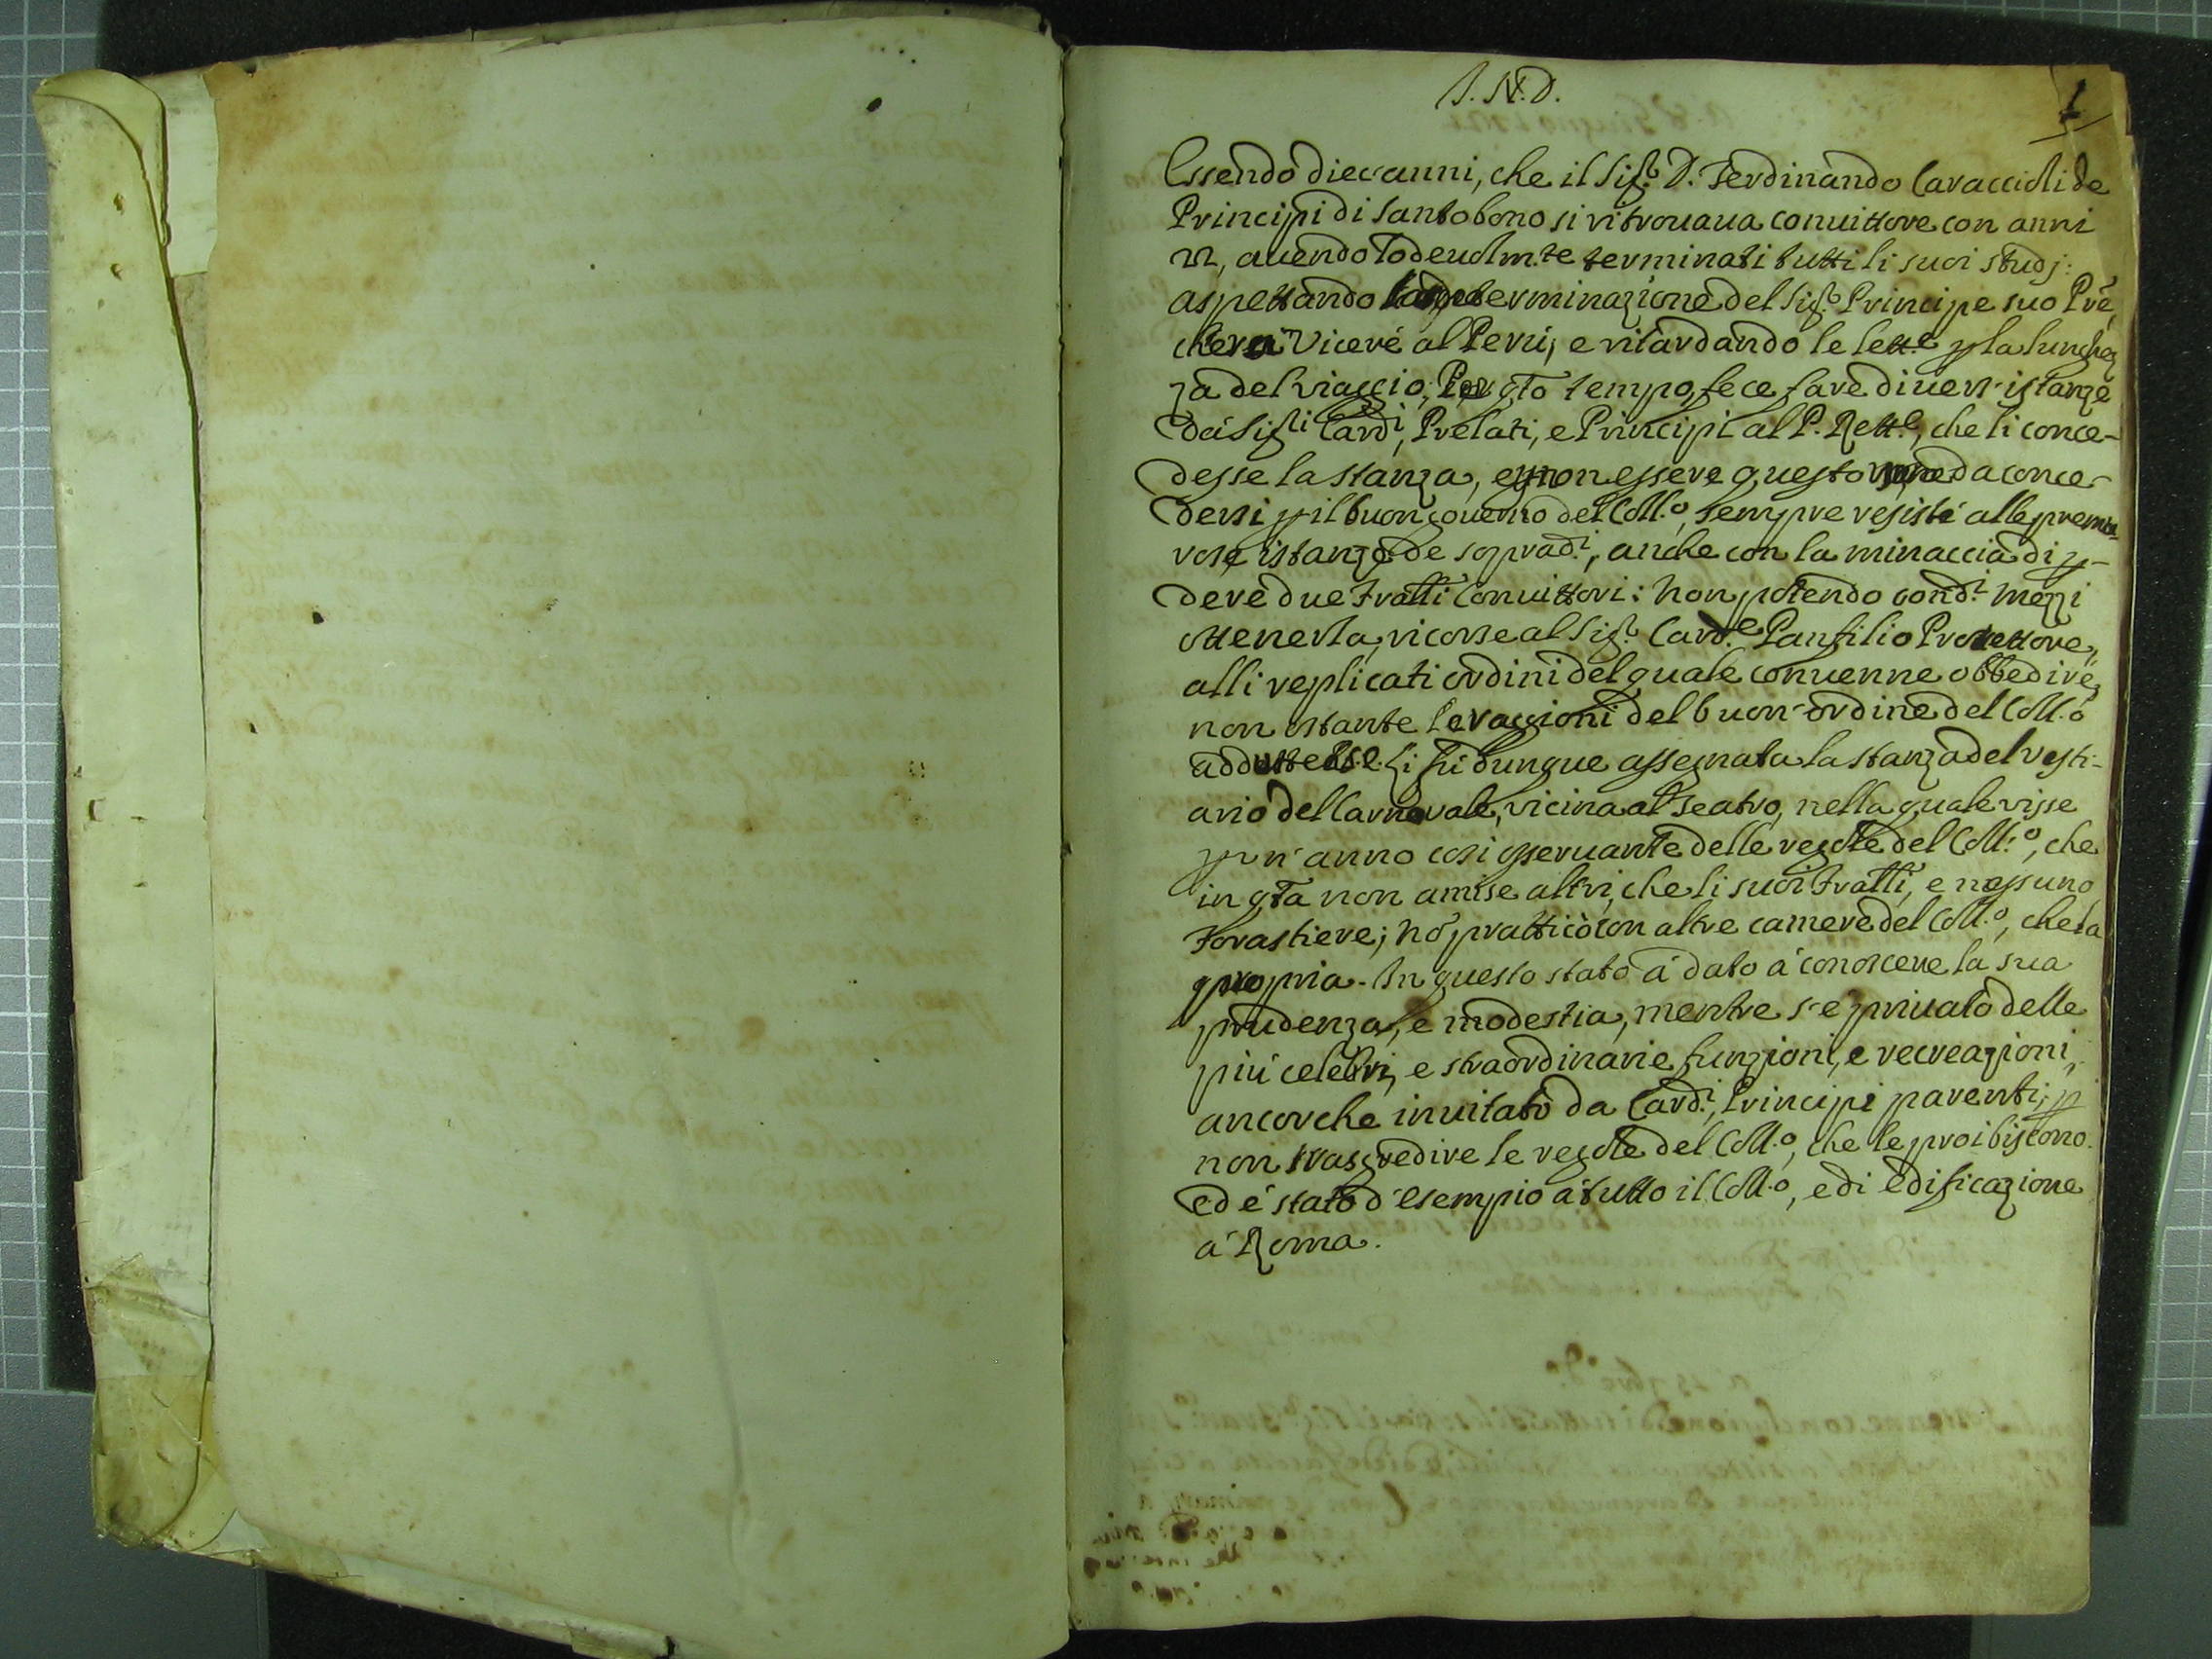 I. N. D.
1
Essendo dieci anni, che il Sig.r D. Ferdinando Caraccioli de
Principi di Santobono si ritrouaua conuittore con anni
22, auendo lodeuolm.te terminati tutti li suoi studj:
aspettando la determinazione del Sig.r Principe suo Prē,
che va Viceré al Perú, e ritardando le lett.e p la lunghez
za del viaggio; Per q̄to tempo fece fare diuers' istanze
dá Sig.li Card.i, Prelati, e Principi al P. Rett.e, che li conce-
desse la stanza, e p non essere questo da conce-
dersi p il buon gouerno del Coll.o, sempre resisté alle premu-
rose istanze de soprad.i, anche con la minaccia di p-
dere due Fratlli Conuittori: Non potendo con d.i mezi
ottenerla, ricorse al Sig.r Card.e Panfilio Protettore,
alli replicati ordini del quale conuenne obbedire,
non ostante le raggioni del buon' ordine del Coll.o
addotteli. Li fú dunque assegnata la stanza del vesti-
ario del Carnovale, vicina al Teatro, nella quale visse
p un' anno cosi osseruante delle regole del Coll.o, che
in q̄ta non amise altri, che li suoi Fratlli, e nessuno
Forastiere; nō pratticò con altre camere del Coll.o, che la
propria. In questo stato á dato á conoscere la sua
prudenza, e modestia, mentre s'e priuato delle
piú celebri, e straordinarie funzioni, e recreazioni,
ancorche inuitato da Card.i, Principi parenti; p
non trasgredire le regole del Coll.o, che le proibiscono.
ed é stato d'esempio á tutto il Coll.o, e di edificazione
á Roma.